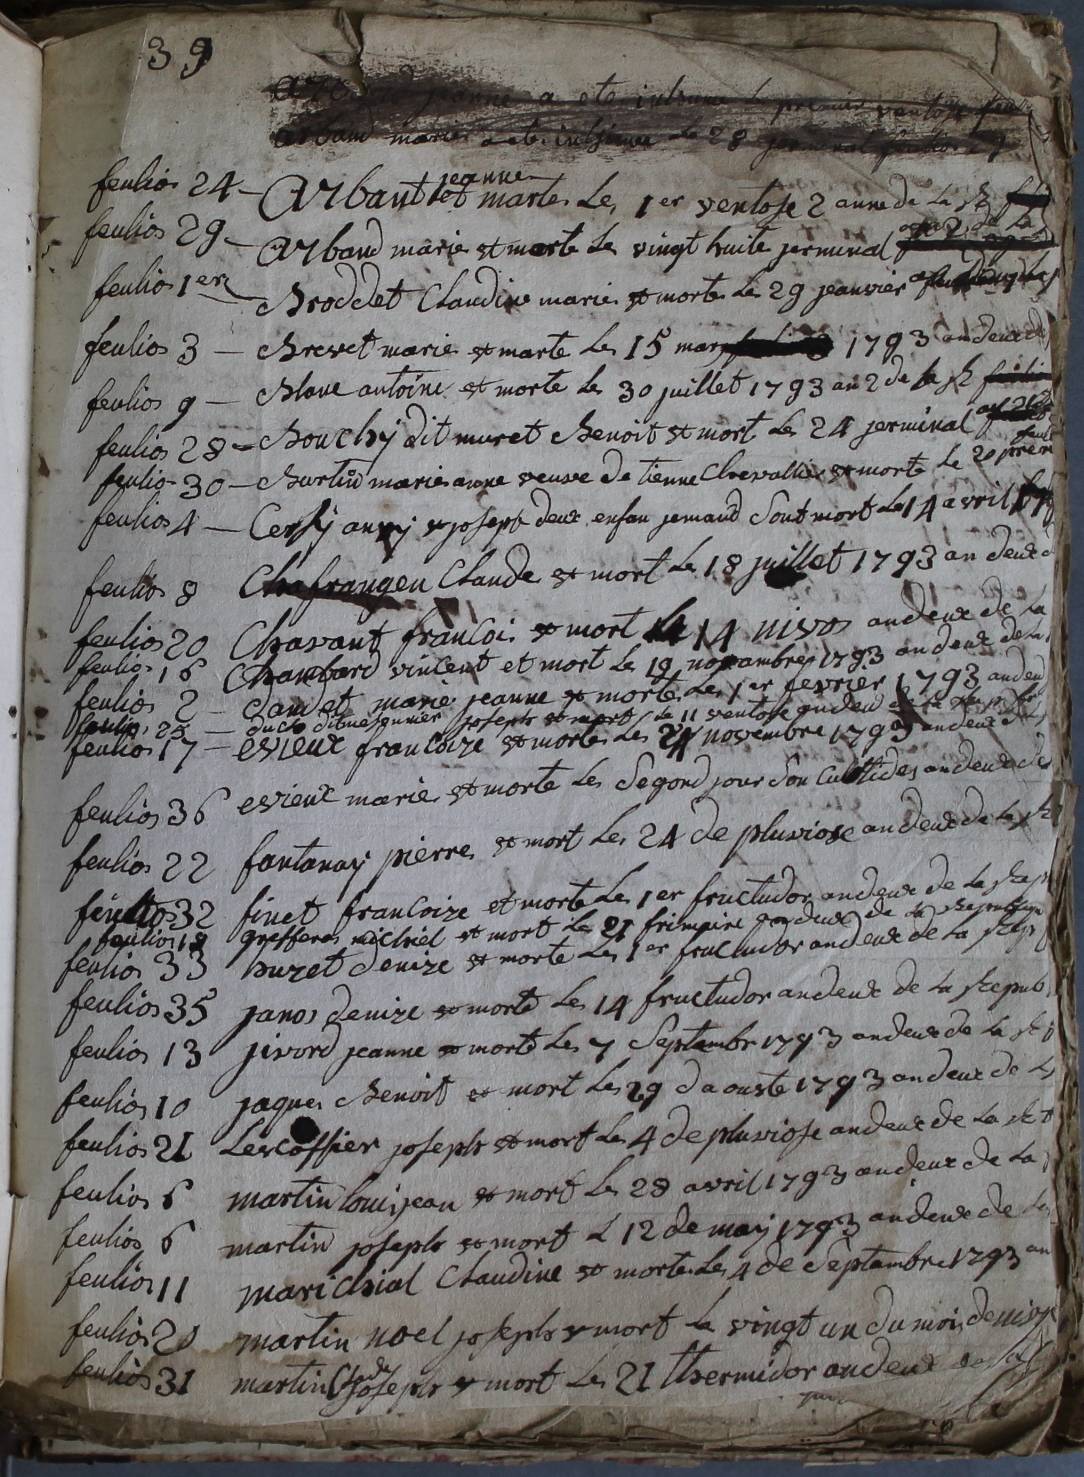 39
jeanne a ete inhume le premier ventose
arband marie a ete inhume le 28 jerminal
feulios 24 - Arbant jeanne et marte les 1er ventose 2 anne de La R
feulios 29 - Arband marie et morte Le vingt huite jerminal
feulios 1er Broddet Claudine marie et morte Le 29 jeanvier
feulios 3 - Brevet marie et marte les 15 mars 1793 an deux d
feulios 9 - Blanc antoine et morte le 30 juillet 1793 an 2 de la R
feulios 28 - Bouchy dit muret Benoit et mort Le 24 jerminal
feulio 30 - Burtin marie anne veuve de tienne Chevallier et morte Le 20
feulios 4 - joseph deux enfan jemaud Sont mort Le 14 avril
feulios 8 Chafrangeu Claude et mort Le 18 juillet 1793 an deux d
feulios 20 Chavant francois et mort le 14 nivos an deux de La
feulios 16 Chambard vincent et mort Le 19 novambre 1793 an deux de La
feulios 2 - marie jeanne et morte Les 1er fevrier 1793 an deu
feulios 25 - joseph et mort Le 11 ventose an deu
feulios 17 - evieux francoize et morte Les 24 novembre 1793 an deux
feulios 36 evieux marie et morte Les Segond jour Son Culttides an deux de
feulios 22 fantanay pierre et mort Les 24 de pluviose an deux de La
feulios 32 finet francoize et morte Les 1er fructudor an deux de La
feulios 18 michiel et mort Le 21 frimaire an deux de La Republique
feulios 33 buzet denize et morte Les 1er fructudor an deux de La
feulios 35 janos denize et morte Les 14 fructudor an deux de La Repub
feulios 13 jivord jeanne et morte Les 7 Septambr 1793 an deux de La
feulios 10 jaques Benoit et mort Les 29 daouste 1793 an deux de L
feulios 21 Lescoffier joseph et mort Les 4 de pluviose an deux de La
feulios 6 martin loui jean et mort Le 28 avril 1793 an deux de La
feulios 6 martin joseph et mort L 12 de may 1793 an deux de La
feulios 11 marichial Claudine et morte Les 4 de Septambre 1793 an
feulios 20 martin noel joseph et mort Le vingt un du mois de nivo
feulios 31 martin joseph et mort Les 21 thermidor an deux de La